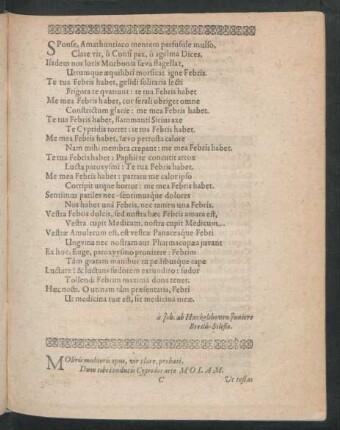 SPonse, Amathuntiaco mentem perfusile mulso,
Clare vir, si Consi pax, si agelma Dices.
Iisdem nos lotis Morbonia sæva flagellat,
Utrumque æquilibri morsicat igne Febris.
Te tua Febris habet, gelidi solitaria lecti
Frigora te qvatiunt: te tua Febris habet
Me mea Febris habet, cor ferali obriget omne
Constrictum glacie: me mea Febris habet.
Te tua Febris habet, flammanti Sirius axe
Te Cypridis torret: te tua Febris habet.
Me mea Febris habet, sævo percussa calore
Nam mihi membra crepant: me mea Febris habet.
Te tua Febris habet: Paphii te concutit arcus
Lucta paroxysmi: Te tua Febris habet.
Me mea Febris habet: patraeu me calor ipso
Corripit unque horror: me mea Febris habet.
Sentimus pariles nec-sentimusque dolores
Nos habet una Febris, nec tamen una Febris.
Vestra Febris dulcis, sed nostra hæc Febris amara est,
Vestra cupit Medicum, nostra cupit Medicum.
Vestræ Amuletum est, est vestræ Panaceaque Febri
Ungvina nec nostram aut Pharmacopæa juvant
Ex hoc, Euge, paroxysmo pronitere: Febrim
Tam gratam manibus tu pedibusque cape
Luctare: & luctans sudorem extundito: sudor
Tollendi Febrim maxima dona tenet.
Hæc nostra. O utinam tàm præsentaria, Febri
Ut medicina tuæ est, sit medicina meæ.
à Joh. ab Hoeckelshoven Juniore
Breslâ-Silesio.
MOlitris molitoris opus, vir clare, probasti,
Dum tibi conducis Cyprodos arte MOLAM.
C Ut testas